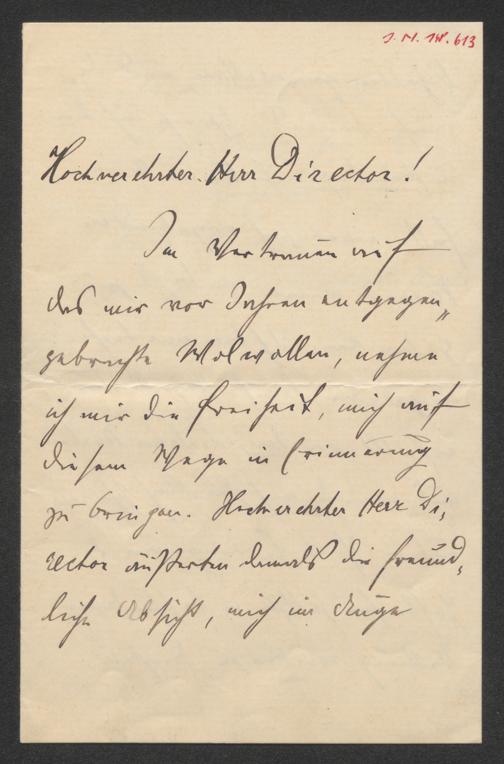 J. N. 148.613
Hochverehrter Herr Director!
Im Vertrauen auf
das mir vor Jahren entgegen„
gebrachte Wolwollen, nehme
ich mir die Freiheit, mich auf
diesem Wege in Erinnerung
zu bringen. Hochverehrter Herr Di„
rector äußerten damals die freund„
liche Absicht, mich im Auge